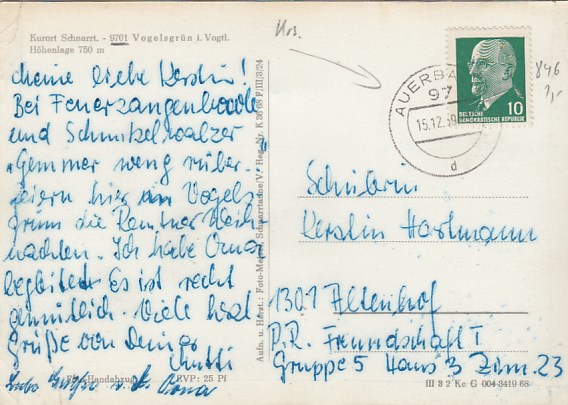 Kurort Schnarrt. - 9701 Vogelsgrün i. Vogtl.
Höhenlage 750 m
Meine liebe Kerstin!
Bei Feuerzangenbowle
und Schunkelwalzer
"Gemmer weng nüber."
feiern hier in Vogels-
grün die Rentner Weih-
nachten. Ich habe Oma
begleitet. Es ist recht
gemütlich. Viele herzl.
Grüße von Deiner
Mutti
Liebe Grüße v. d. Oma
Handabzug
EVP: 25 Pf
Aufn. u. Herst.: Foto-
Reg. Nr. K 36/68 F/III/3/24
Krs.
AUERBA
97
15.12.69
d
10
DEUTSCHE
DEMOKRATISCHE REPUBLIK
846
Schülerin
Kerstin Hartmann
1301 Altenhof
P.R. Freundschaft I
Gruppe 5 Haus 3 Zim. 23
III 3 2 Ke G 004 3419 68